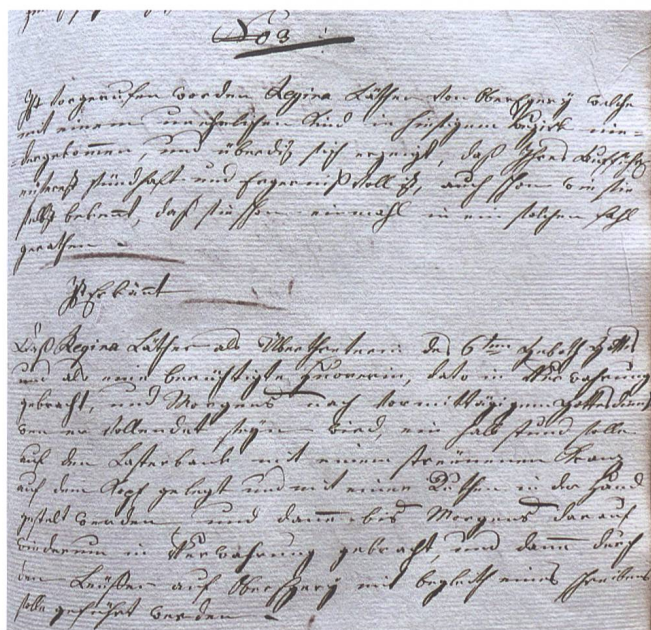 No 3 :
Ist vorgerufen worden Regina Lüthen von Oberegery welche
mit einem unehelichen Kind in hiesigem Bezirk nie-
dergekommen, und überdiß sich erzeigt, daß Ihres
sündhafft und Ergernißvoll ist, auch schon wie sie
selbst bekennt, daß sie schon einmahl in ein solchen fahl
gerathen
Ist Erkännt
Daß Regina Lüthen als Übertretterin des 6ten Geboth Gottes
und als eine berüchtigte Huorerin, dato in Verwahrung
gebracht, und Morgens nach vormittägigem Gottesdienst
wen er vollendet seyn wird, ein halb stund solle
auf den Lasterbank mit einem ströuenen Kranz
auf dem Kopf gelegt und mit einer Ruthen in der Hand
gestelt werden, und dann bis Morgens darauf
wiederum in Verwahrung gebracht, und dann durch
den Leüffer auf Oberegery mit begleith eines schreibens
solle geführt werden